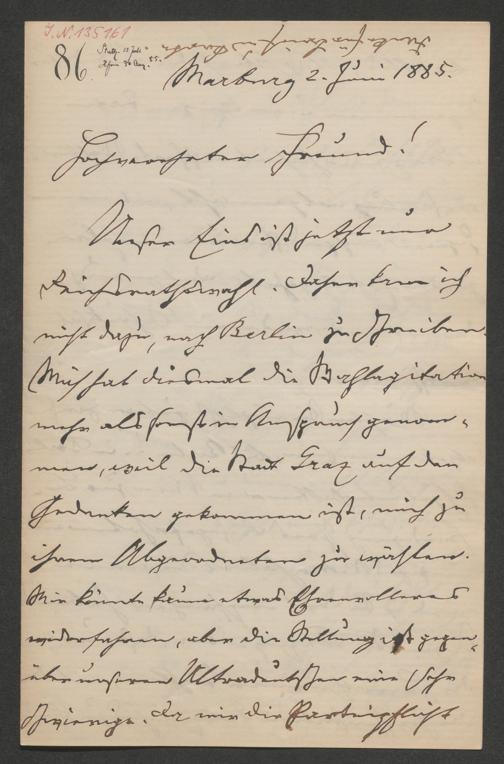 J.N. 135161
86.
Marburg 2. Juni 1885.
Hochverehrter Freund!
Unser Eins ist jetzt nur
Reichsrathswahl. Daher kam ich
nicht dazu, nach Berlin zu schreiben.
Mich hat diesmal die Wahlagitation
mehr als sonst in Anspruch genom-
men, weil die Stadt Graz auf den
Gedanken gekommen ist, mich zu
ihrem Abgeordneten zu wählen.
Mir könnte kaum etwas Ehrenvolleres
widerfahren, aber die Stellung ist gegen-
über unseren Ultradeutschen eine sehr
schwierige. Da mir die Parteipflicht